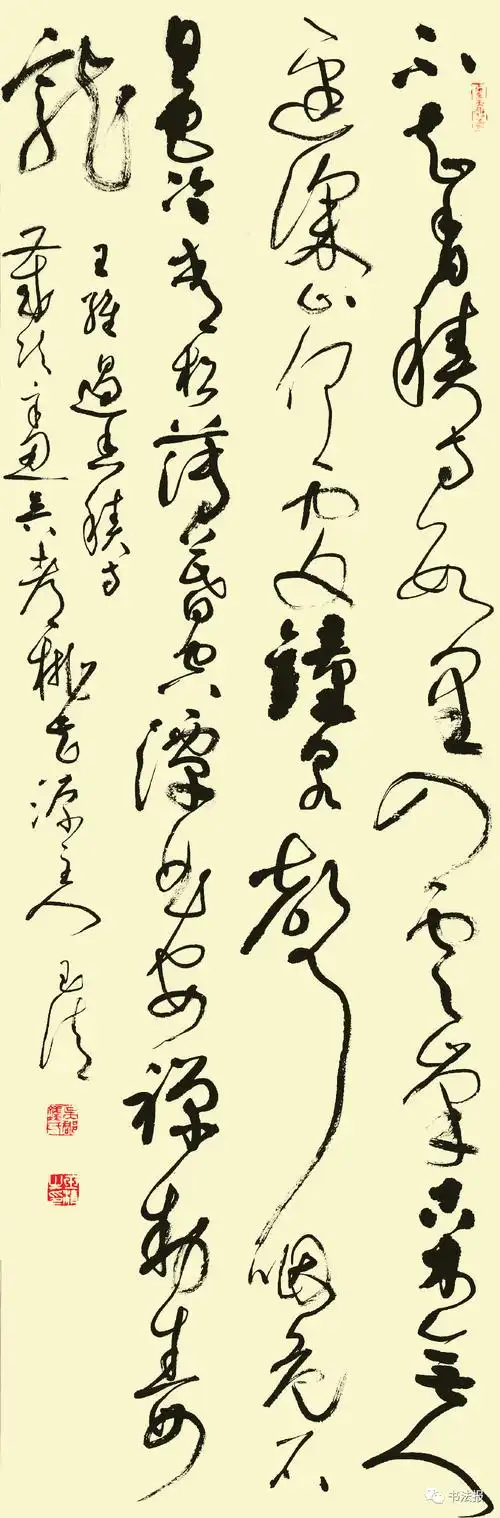 不知香積寺數里入雲峰古木無人
逕深山何處鐘泉聲咽危石
日色冷青松薄暮空潭曲安禪制毒
龍
王維過香積寺
桃花源主人 玉清
书法报